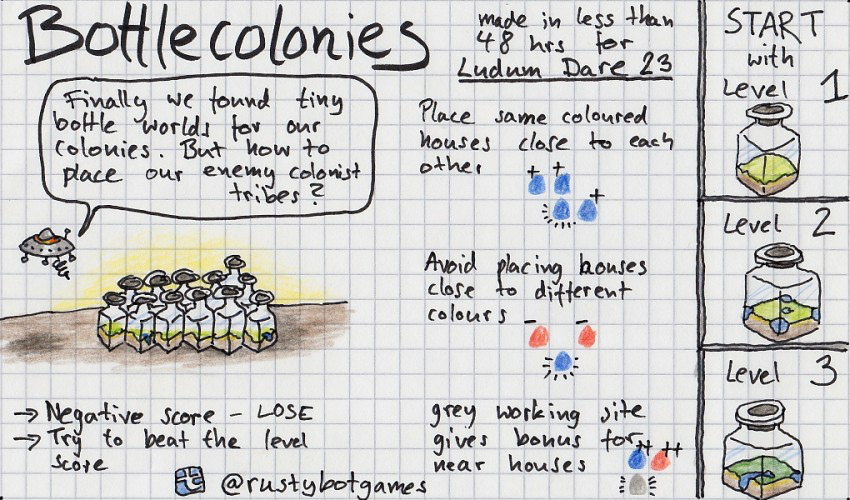 Bottlecolonies
Finally we found tiny
bottle worlds for our
colonies. But how to
place our enemy colonist
tribes?
→ Negative score - LOSE
→ Try to beat the level
score
@rustybotgames
made in less than
48 hrs for
Ludum Dare 23
Place same coloured
houses close to each
other
+ +
+
Avoid placing houses
close to different
colours
- -
grey working site
gives bonus for
near houses
++ ++
START
with
Level 1
Level 2
Level 3